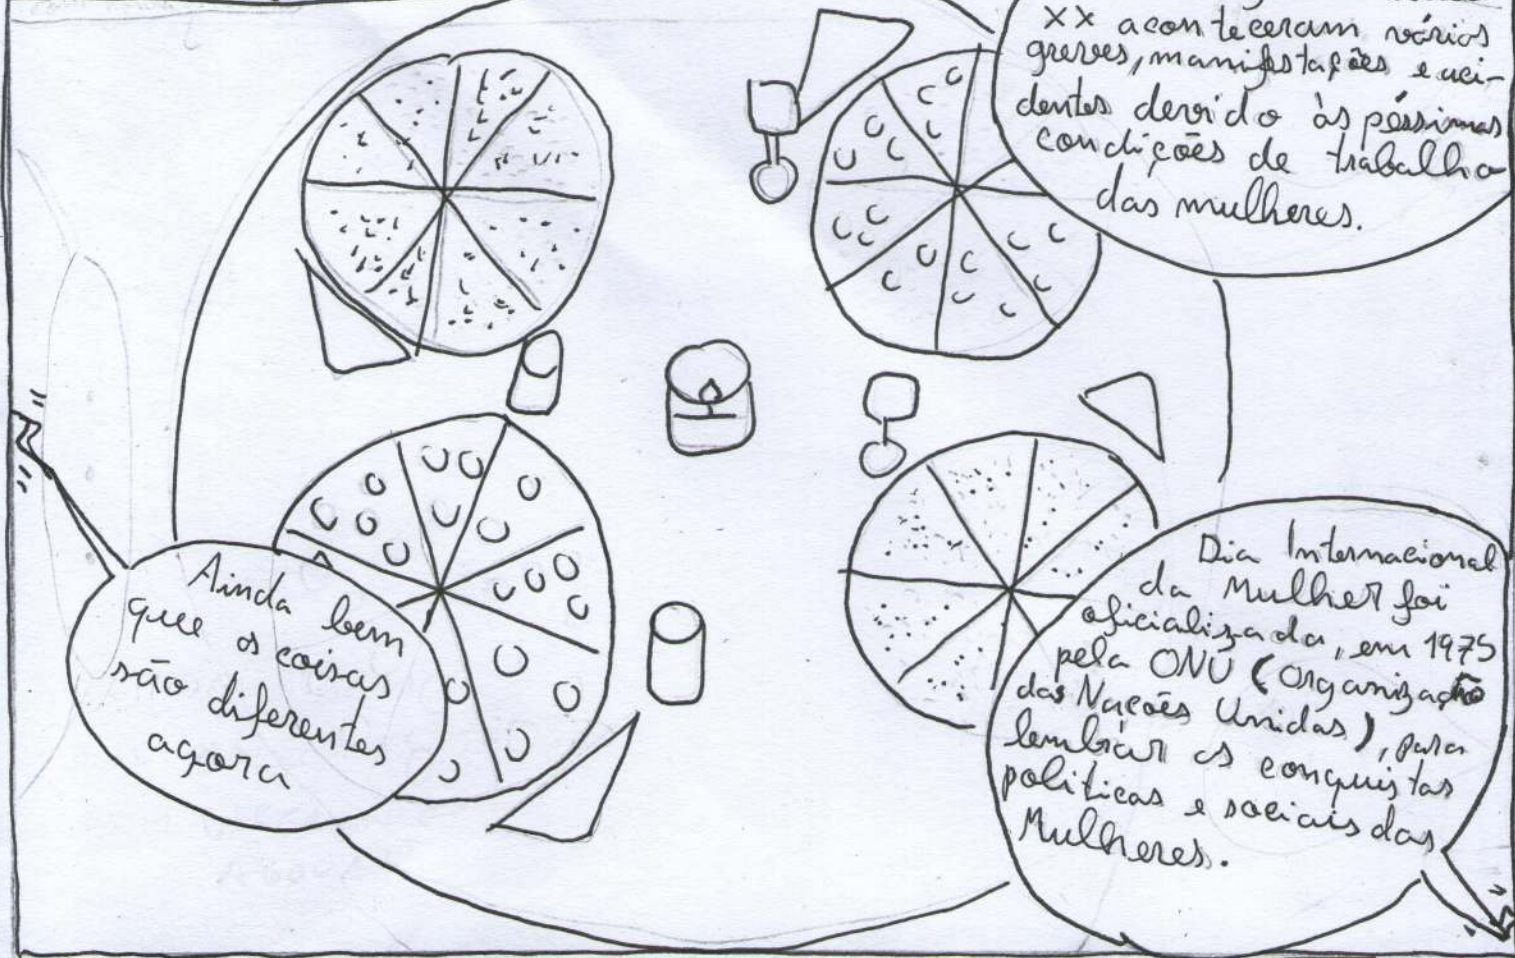 XX aconteceram vários
greves, manifestações e aci-
dentes devido às péssimas
condições de trabalho
das mulheres.
Ainda bem
que as coisas
são diferentes
agora
Dia Internacional
da Mulher foi
oficializada, em 1975
pela ONU (Organização
das Nações Unidas), para
lembrar as conquistas
políticas e sociais das
Mulheres.